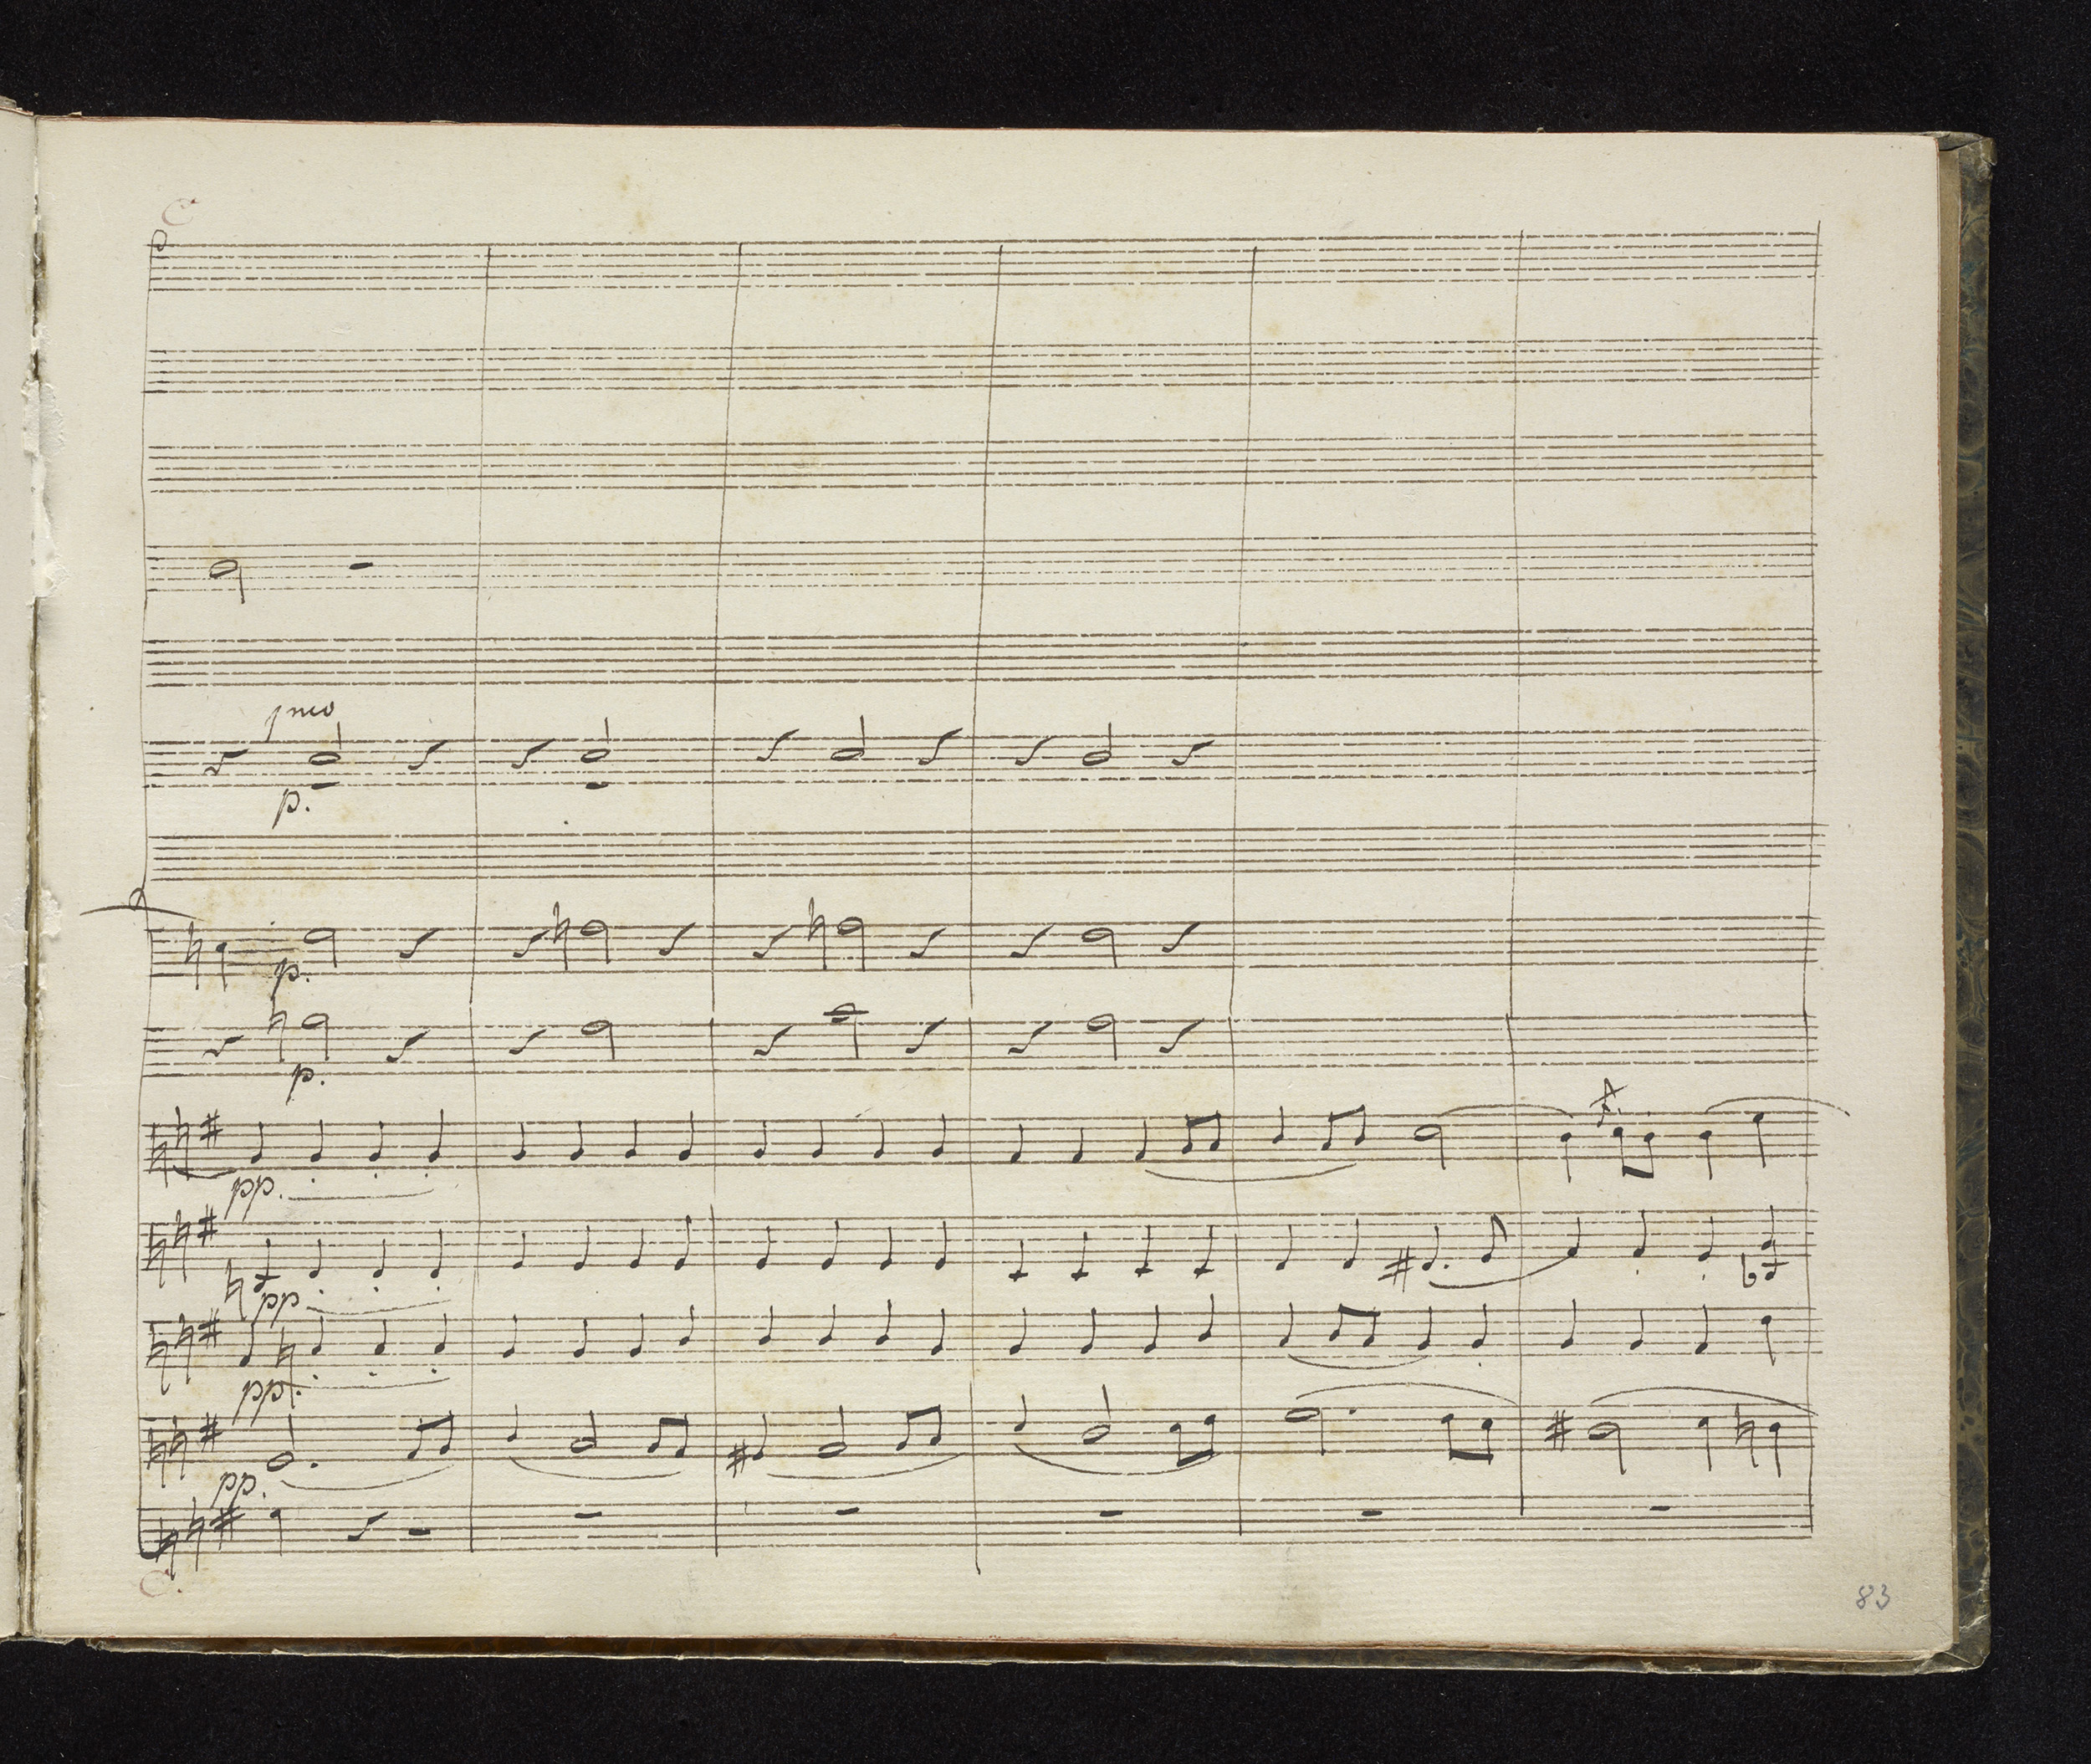 C
pmo
p.
p.
p.
pp.
pp
pp.
pp.
C.
83